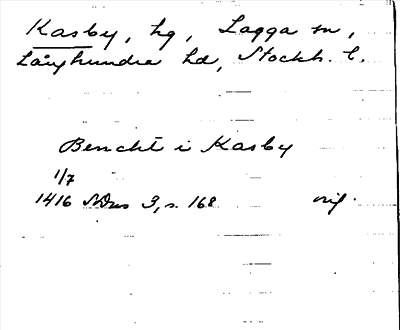 Kasby, hg, Lagga sn,
Långhundra hd, Stockh. l.
Bencht i Kasby
1/7
1416 SDns 3, s. 168 orig.